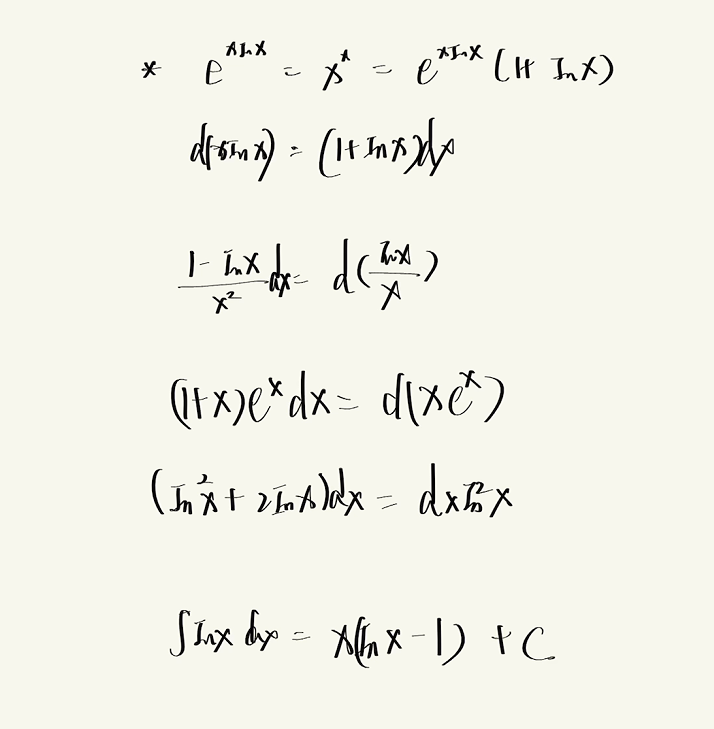 * e^{x ln x} = x^x = e^{x ln x} (1+ ln x)
d(x ln x) = (1+ ln x)dx
\frac{1 - ln x}{x^2} dx = d(\frac{ln x}{x})
(1+x)e^x dx = d(xe^x)
(ln^2 x + 2 ln x)dx = dx ln^2 x
∫ ln x dx = x(ln x - 1) + C